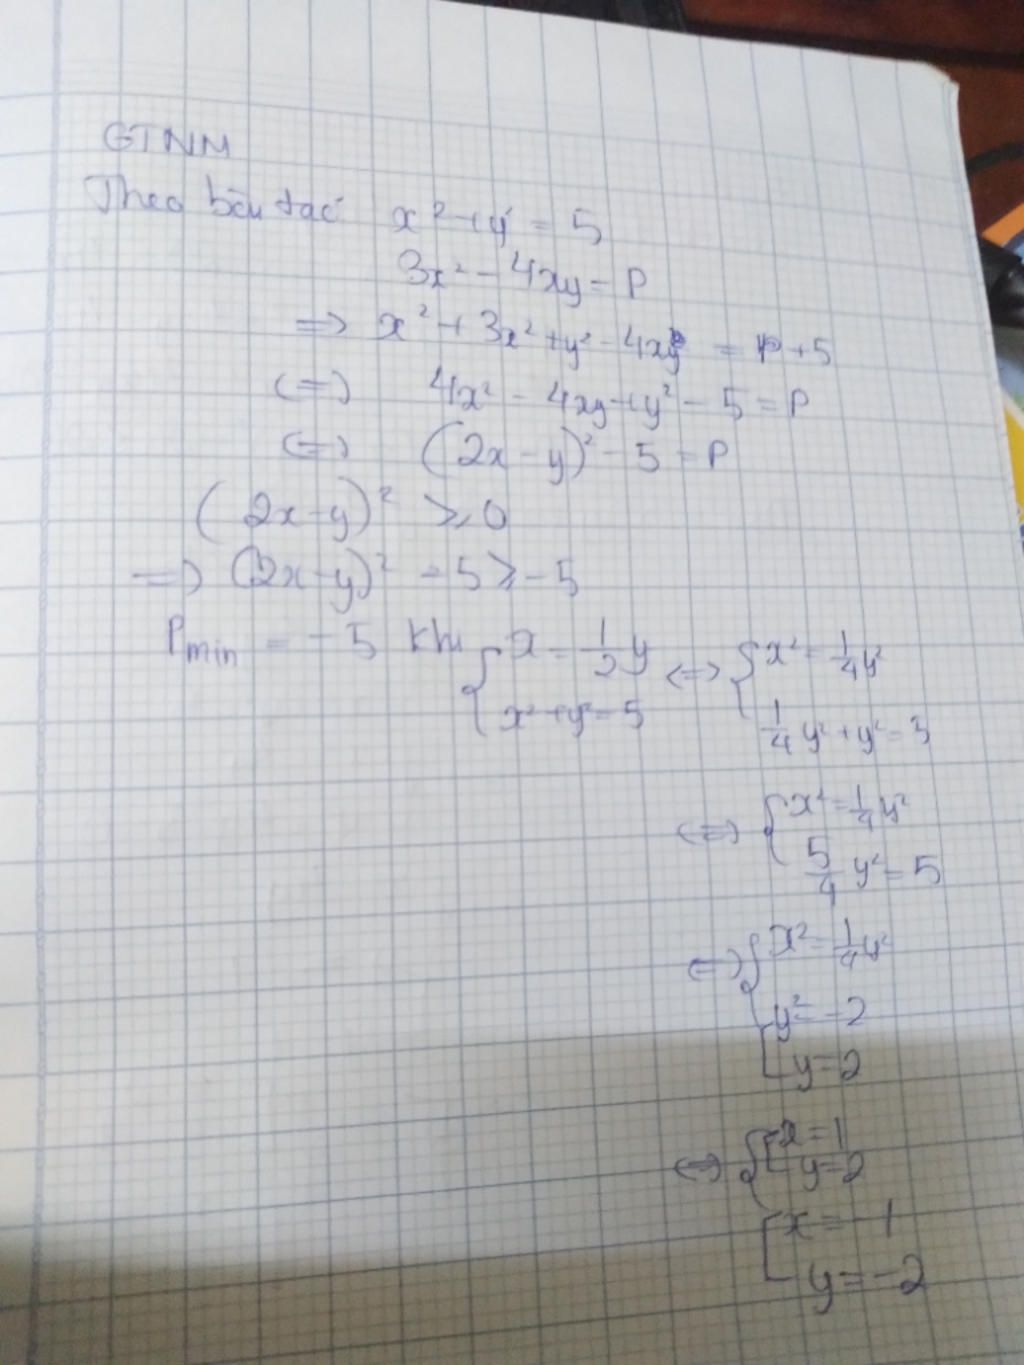 GTNN
Theo bài ta có x² + y² = 5
3x² - 4xy = P
=> x² + 3x² + y² - 4xy = P + 5
(=) 4x² - 4xy + y² - 5 = P
(=) (2x - y)² - 5 = P
(2x - y)² ≥ 0
=> (2x - y)² - 5 ≥ -5
Pmin = -5 khi { x = 1/2 y <=> { x² = 1/4 y²
x² + y² = 5
1/4 y² + y² = 5
<=> { x² = 1/4 y²
5/4 y² = 5
<=> { x² = 1/4 y²
[ y² = -2
y = 2
<=> { [ x = 1
y = 2
[ x = -1
y = -2